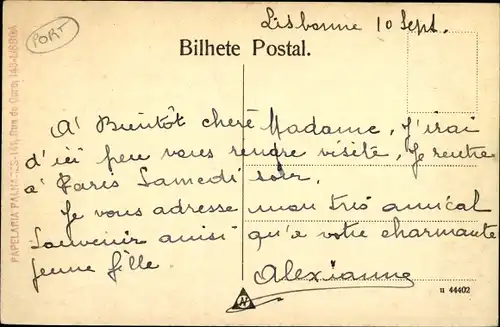 Lisbonne 10 Sept.
PORT
Bilhete Postal.
A' Bientôt chère Madame, J'irai
d'ici peu vous rendre visite, Je rentre
à Paris Samedi soir.
Je vous adresse mon très amical
Souvenir ainsi qu'a votre charmante
jeune fille.
Alexianne
N
u 44402
PAPELARIA Rua do Ouro, LISBOA